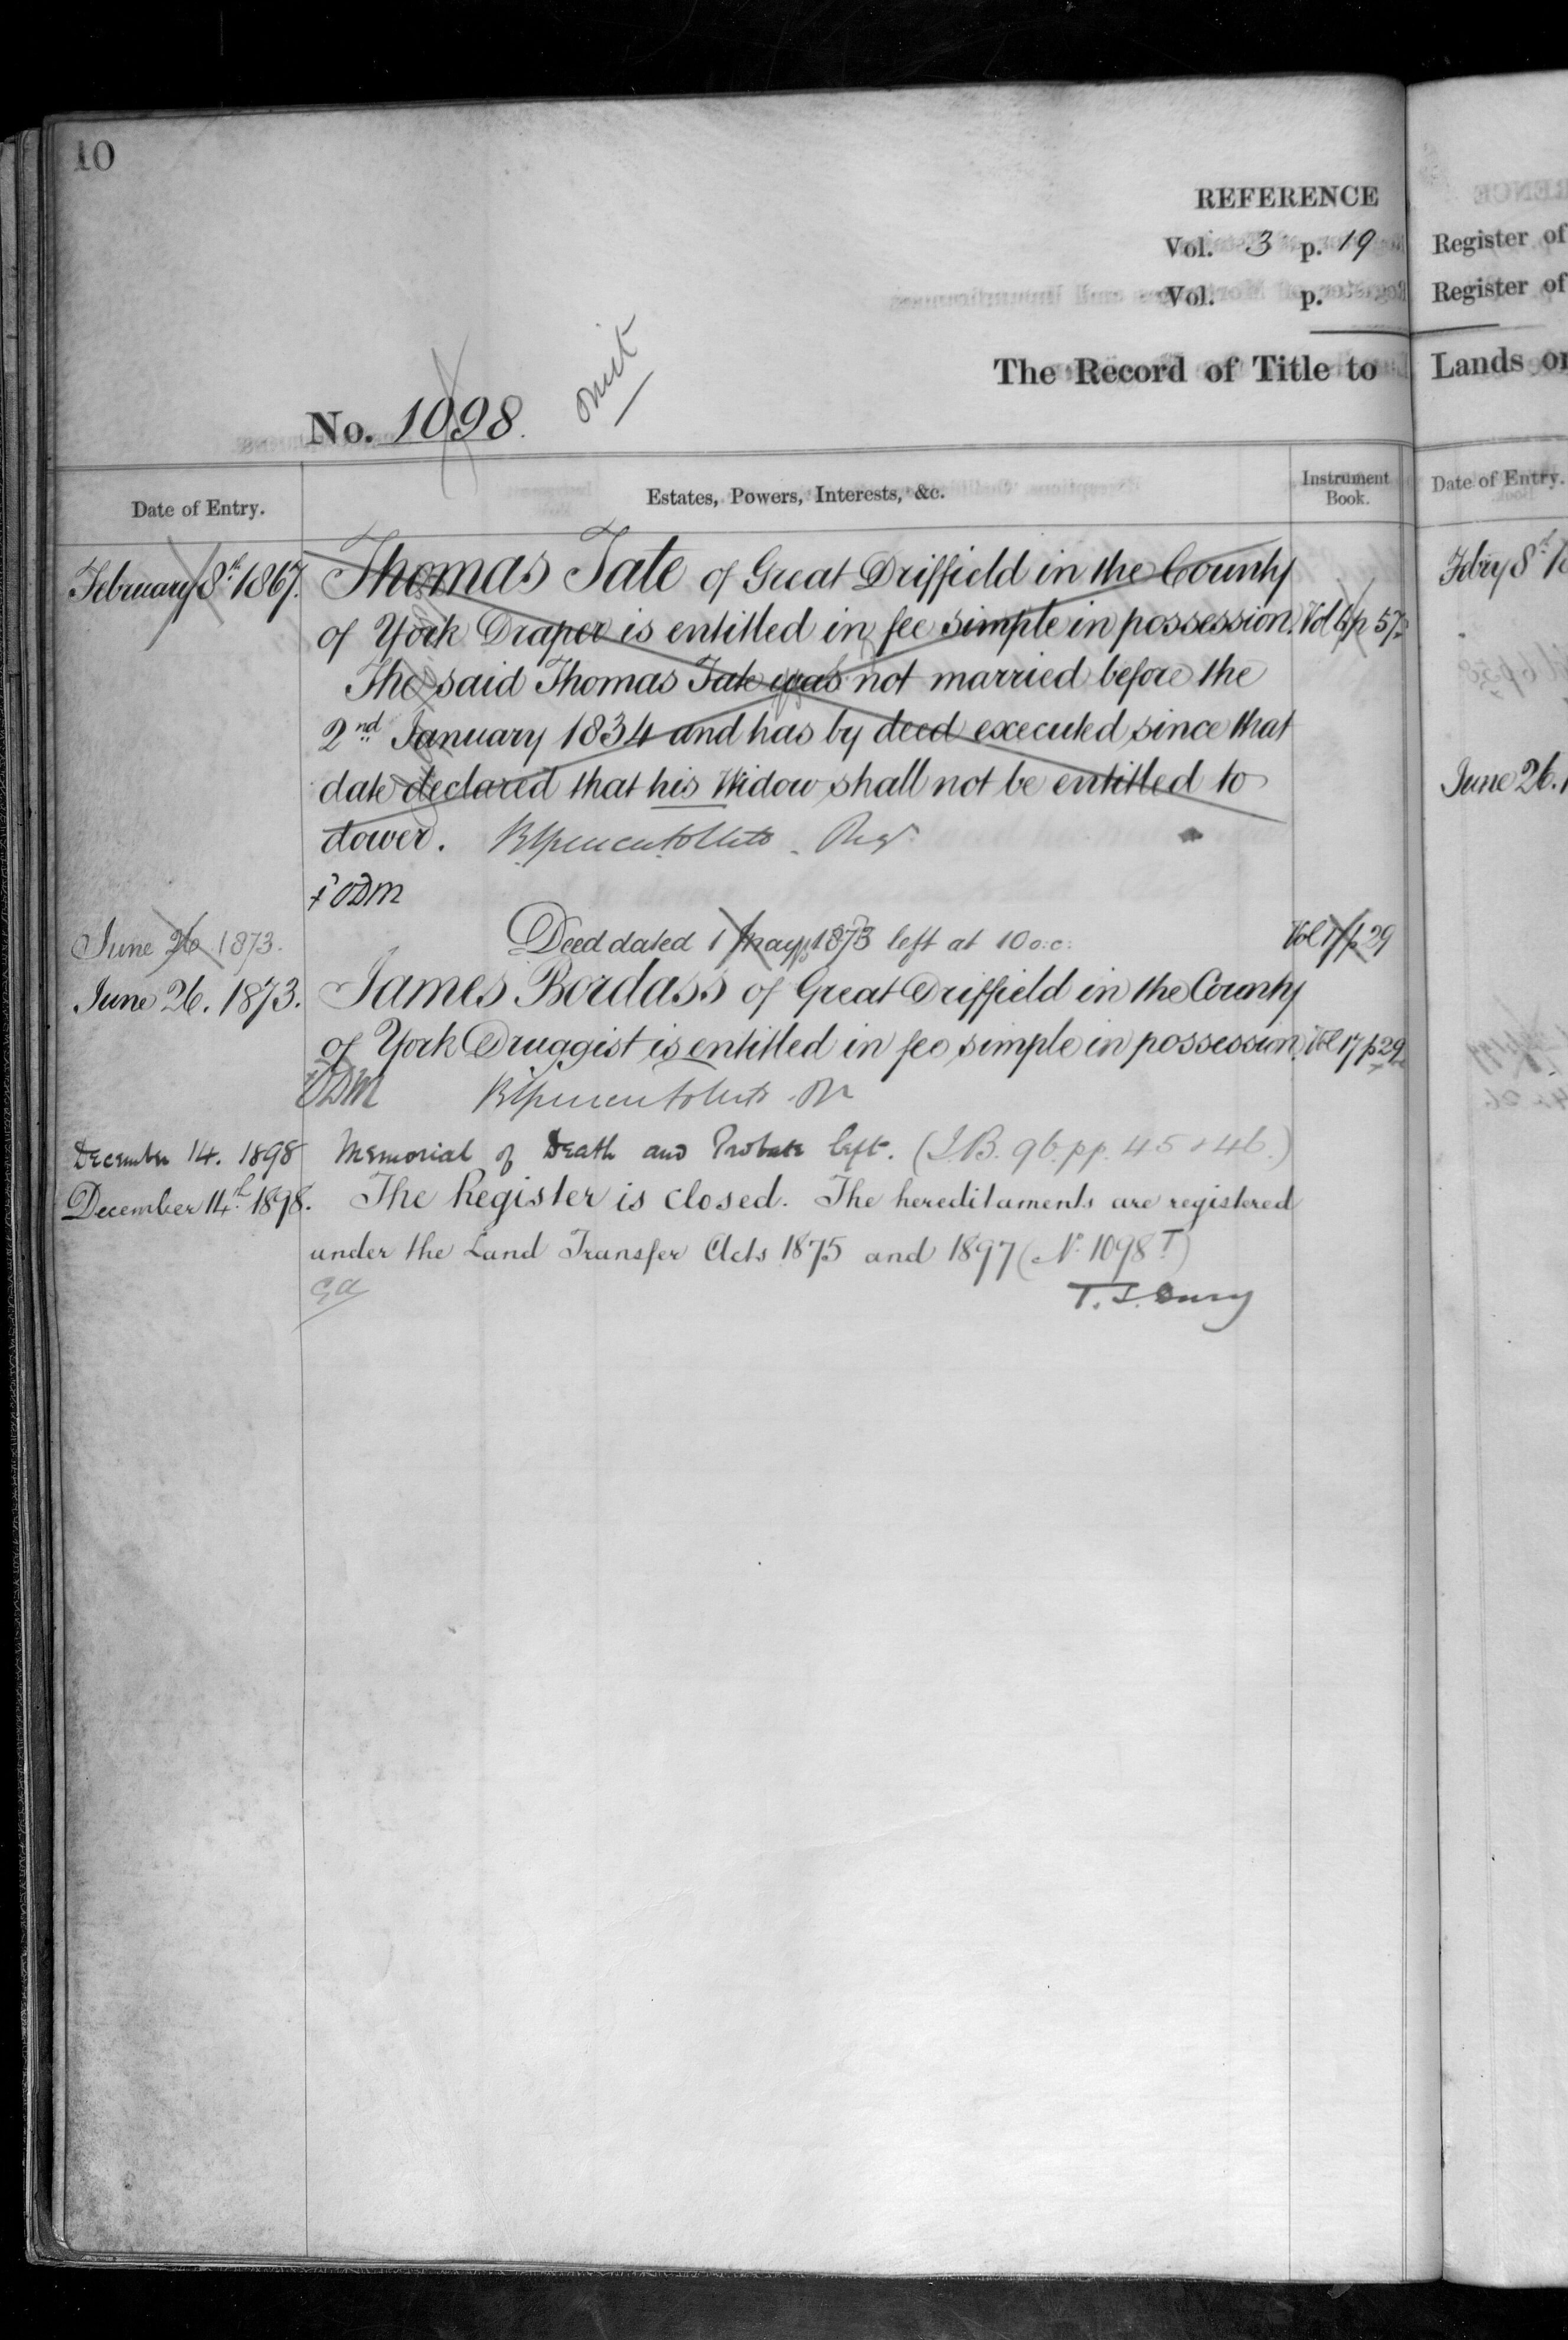 10
REFERENCE
Vol. 3 p. 19
Vol. p.
The Record of Title to
No. 1098. omit
Date of Entry. Estates, Powers, Interests, &c. Instrument Book.
February 8th 1867. Thomas Tate of Great Driffield in the County
of York Draper is entitled in fee simple in possession. Vol 6 p 57
The said Thomas Tate was not married before the
2nd January 1834 and has by deed executed since that
date declared that his Widow shall not be entitled to
dower.
ODM
June 26 1873. Deed dated 1 May 1873 left at 10 o.c. Vol 17 p 29
June 26. 1873. James Bordass of Great Driffield in the County
of York Druggist is entitled in fee simple in possession. Vol 17 p 29
ODM
December 14. 1898 Memorial of Death and Probate left. (I.B. 96. pp. 45 & 46.)
December 14th 1898. The Register is closed. The hereditaments are registered
under the Land Transfer Acts 1875 and 1897 (No 1098 T)
Register of
Register of
Lands or
Date of Entry.
Febry 8th 18
June 26. 1